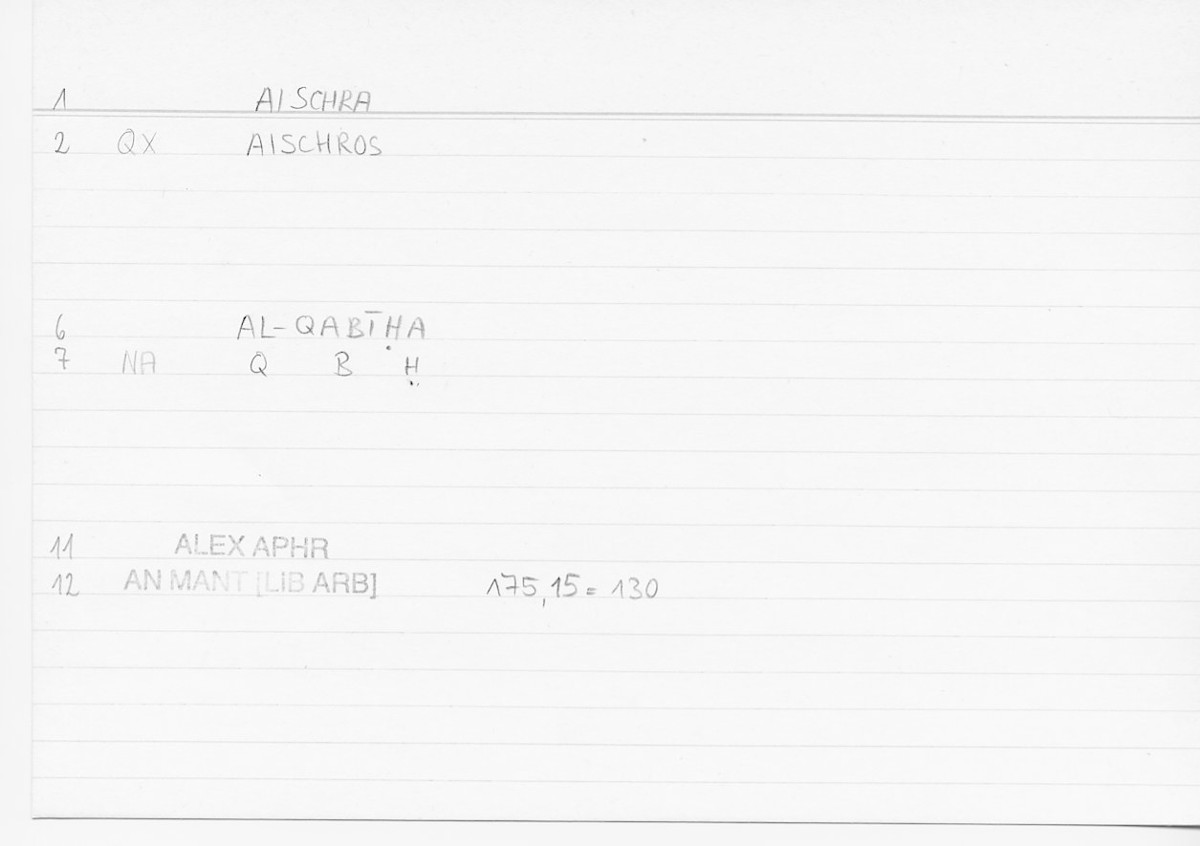 1 AISCHRA
2 QX AISCHROS
6 AL-QABĪḤA
7 NA Q B Ḥ
11 ALEX APHR
12 AN MANT [LIB ARB] 175,15 = 130